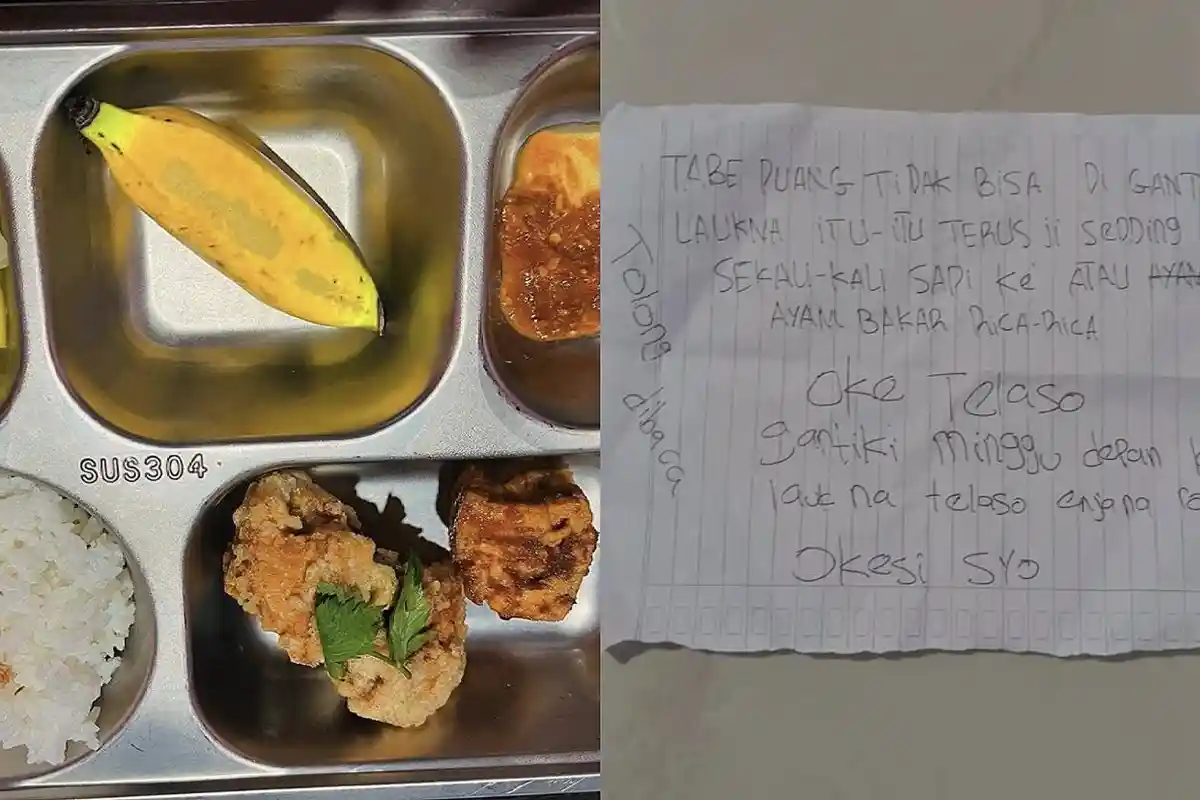 SUS304
TABE PUANG TiDAK BiSA Di GANT
LAUKNA iTU-iTU TERUS Ji SeDDiNg
SEKALi-KALi SAPi Ke ATAU AYA
AYAM BAKAR RiCA-RiCA
Oke Telaso
gantiki minggu depan
lauk na telaso enjana
Okesi SYO
Tolong dibaca